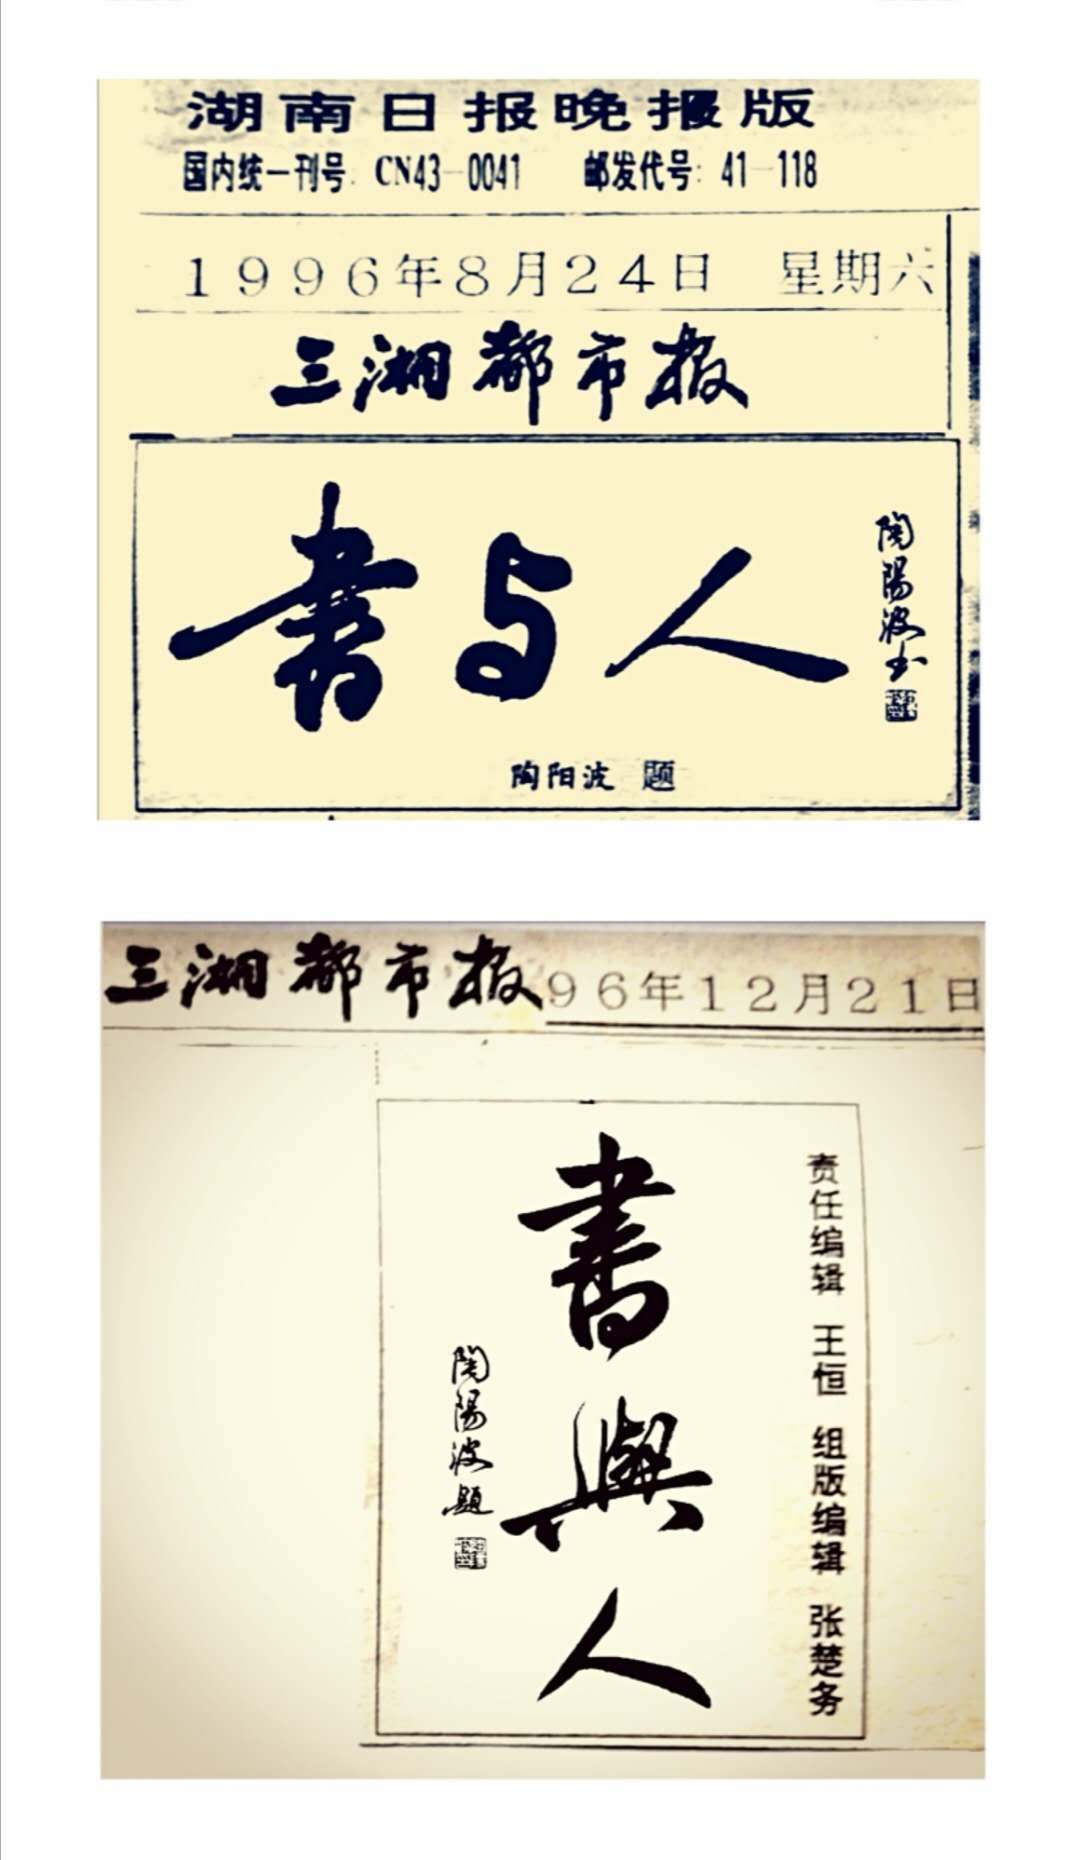 湖南日报晚报版
国内统一刊号：CN43-0041 邮发代号：41-118
1996年8月24日 星期六
三湘都市报
書与人
陶陽波书
陶阳波 题
三湘都市报
96年12月21日
责任编辑 王恒 组版编辑 张楚务
書與人
陶陽波题